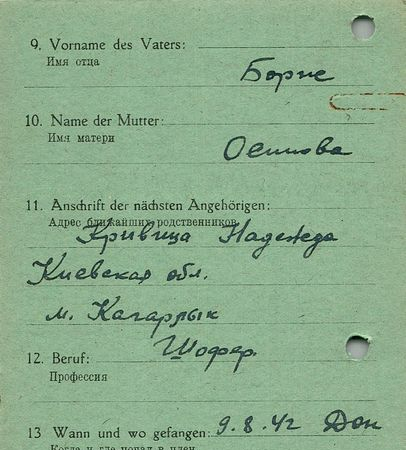 9. Vorname des Vaters:
Имя отца
Борис
10. Name der Mutter:
Имя матери
Осипова
11. Anschrift der nächsten Angehörigen:
Адрес ближайших родственников
Кривица Надежда
Киевская обл.
м. Кагарлык
12. Beruf:
Шофер.
Профессия
13 Wann und wo gefangen: 9.8.42 Дон
Когда и где попал в плен